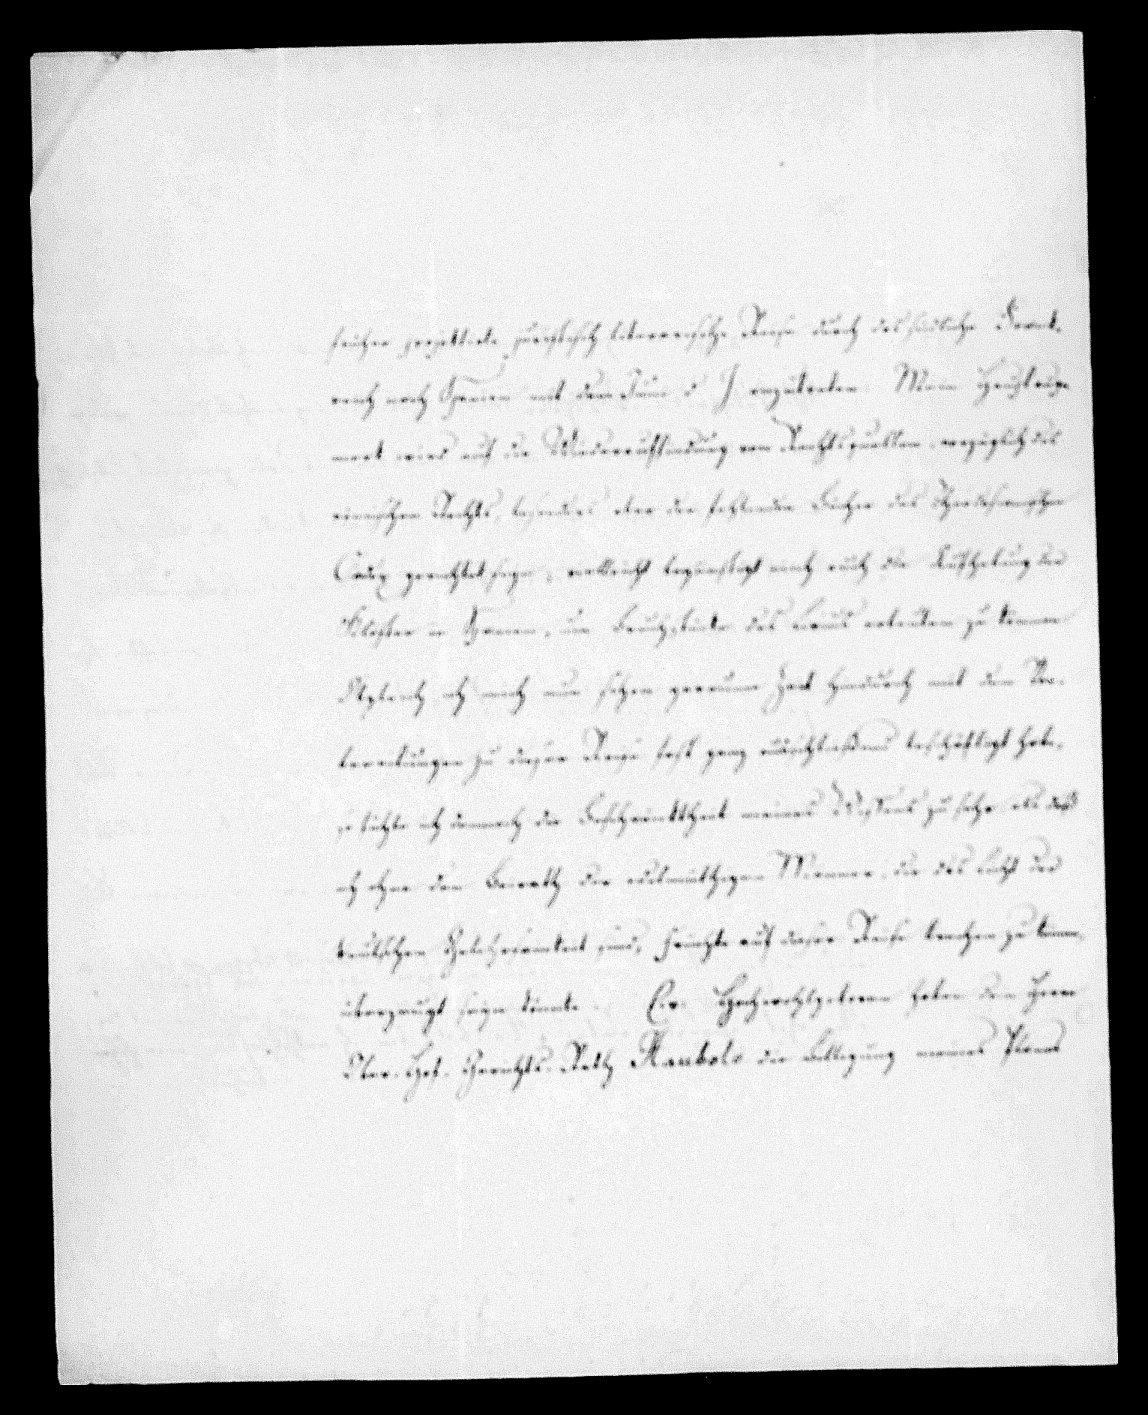 früher projektirte juristisch literarische Reise durch das südliche Frank-
reich nach Spanien mit dem Juni d J anzutreten. Mein Haupt augen
merk wird auf die Wiederauffindung von Rechtsquellen, vorzüglich des
römischen Rechts, besonders aber der fehlenden Bücher des Theodosianischen
Codex gerichtet seyn; vielleicht begünstigt mich auch die Aufhebung der
Klöster in Spanien, um Bruchstücke des erbeuten zu können
Obgleich ich mich nun schon geraume Zeit hindurch mit den Vor-
bereitungen zu dieser Reise fast ganz ausschließend beschäftigt habe,
so fühle ich dennoch die Beschränktheit meines Wissens zu sehr als daß
ich ohne den Beirath der edelmüthigen Männer, die das Licht der
deutschen Gelehrsamkeit sind, Früchte auf dieser Reise brechen zu können,
überzeugt seyn könnte. Ew. Hochwohlgeboren haben dem Herrn
Ober-Hof-Gerichts-Rath Haubold die Billigung meines Planes